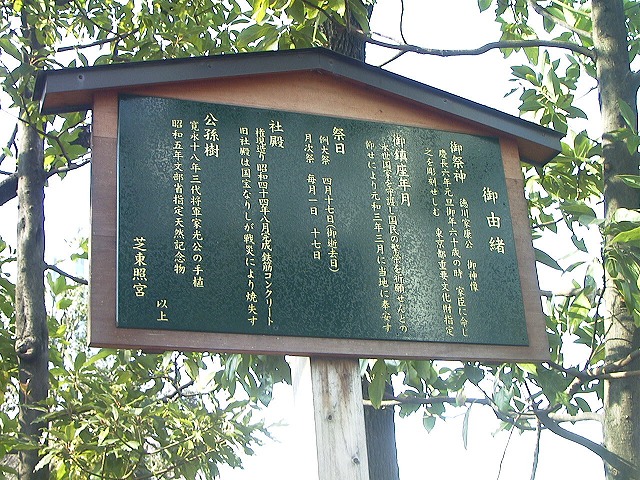 御由緒
御祭神 徳川家康公 御神像
慶長六年元旦御年六十歳の時 家臣に命し
之を彫刻せしむ 東京都重要文化財指定
御鎮座年月
永世国家を守護し国民の繁栄を祈願せんとの
仰せにより元和三年三月に当地に奉安す
祭日
例大祭 四月十七日(御逝去日)
月次祭 毎月一日 十七日
社殿
権現造り 昭和四十四年八月完成 鉄筋コンクリート
旧社殿は国宝なりしが戦災により焼失す
公孫樹
寛永十八年三代将軍家光公の手植
昭和五年文部省指定天然記念物
以上
芝東照宮